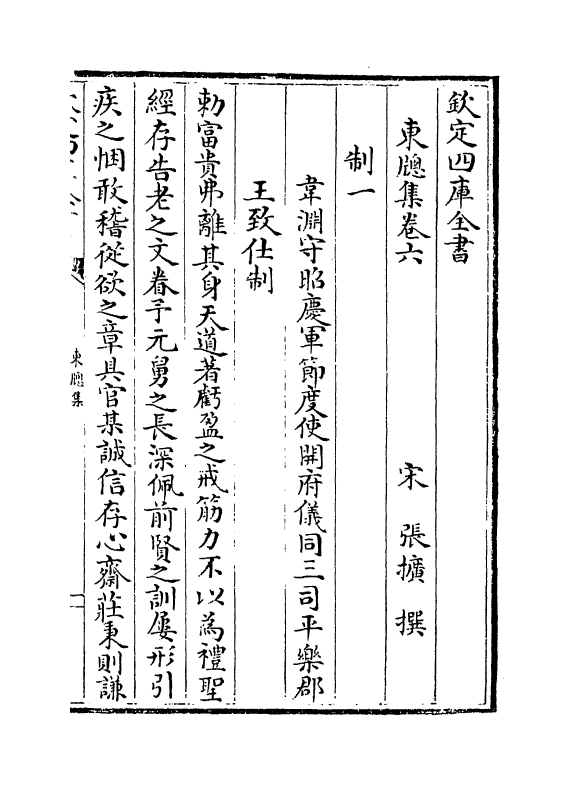 欽定四庫全書
東牎集卷六　宋　張擴　撰
制一
韋淵守昭慶軍節度使開府儀同三司平樂郡
王致仕制
勅富貴弗離其身天道著虧盈之戒筋力不以為禮聖
經存告老之文眷予元舅之長深佩前賢之訓屢形引
疾之悃敢稽從欲之章具官某誠信存心齋莊秉則謙
東牎集